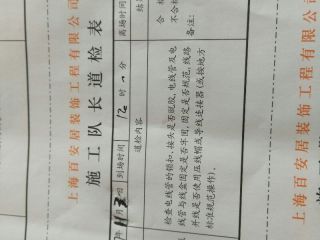 上海百安居装饰工程有限公司
施工队长道检表
年 月 3 日 到场时间 12 时 分 离场时间
道检内容 结
检查电线管的锁扣、接头是否脱胶，电线管及电
线管与线盒固定是否牢固，固定是否规范，线路
并线是否使用压线帽或导线连接器（或按地方
标准规范操作）。
合
不合格
备注：
上海百安居装饰工程有限公